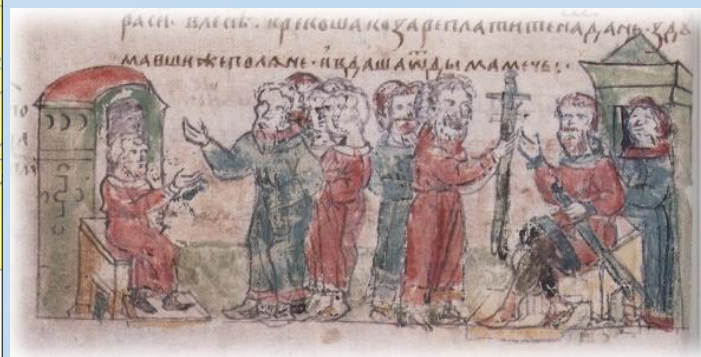 рѧси· влесѣ· и рекоша козаре платите на дань· здѹ
мавши же полѧне· и въдаша ѿ дыма мечь:·